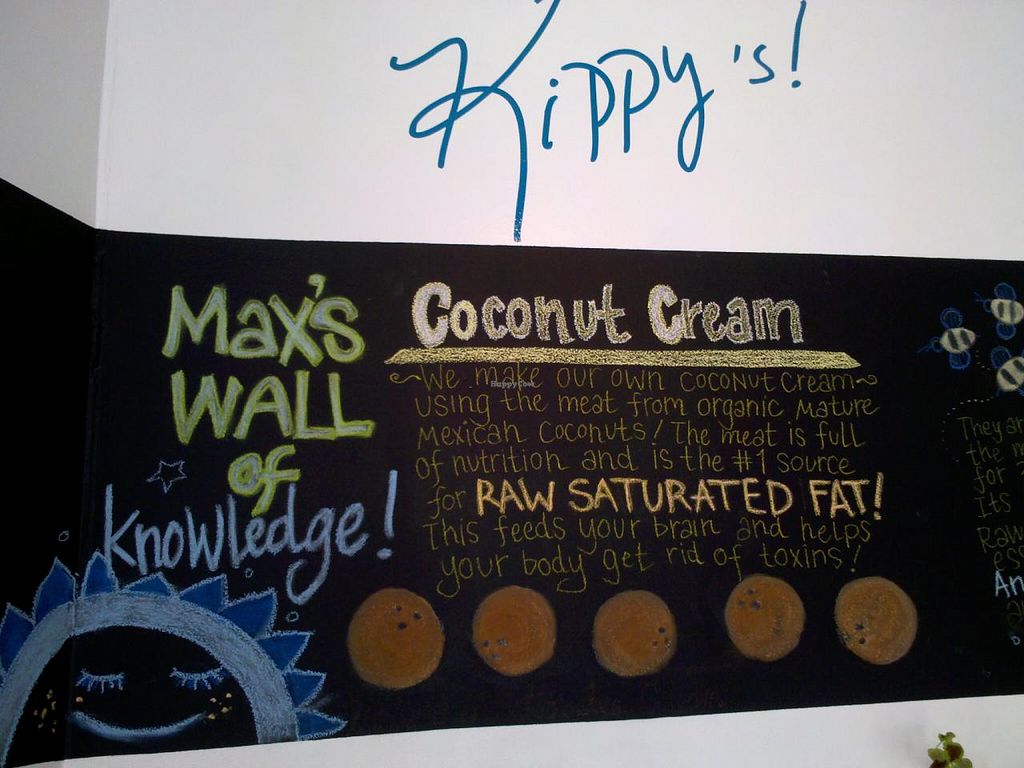 Kippy's!
Max's
WALL
of
Knowledge!
Coconut Cream
~We make our own coconut cream~
using the meat from organic mature
Mexican Coconuts! The meat is full
of nutrition and is the #1 source
for RAW SATURATED FAT!
This feeds your brain and helps
your body get rid of toxins!
HappyCow
They
the
for
Its
Raw